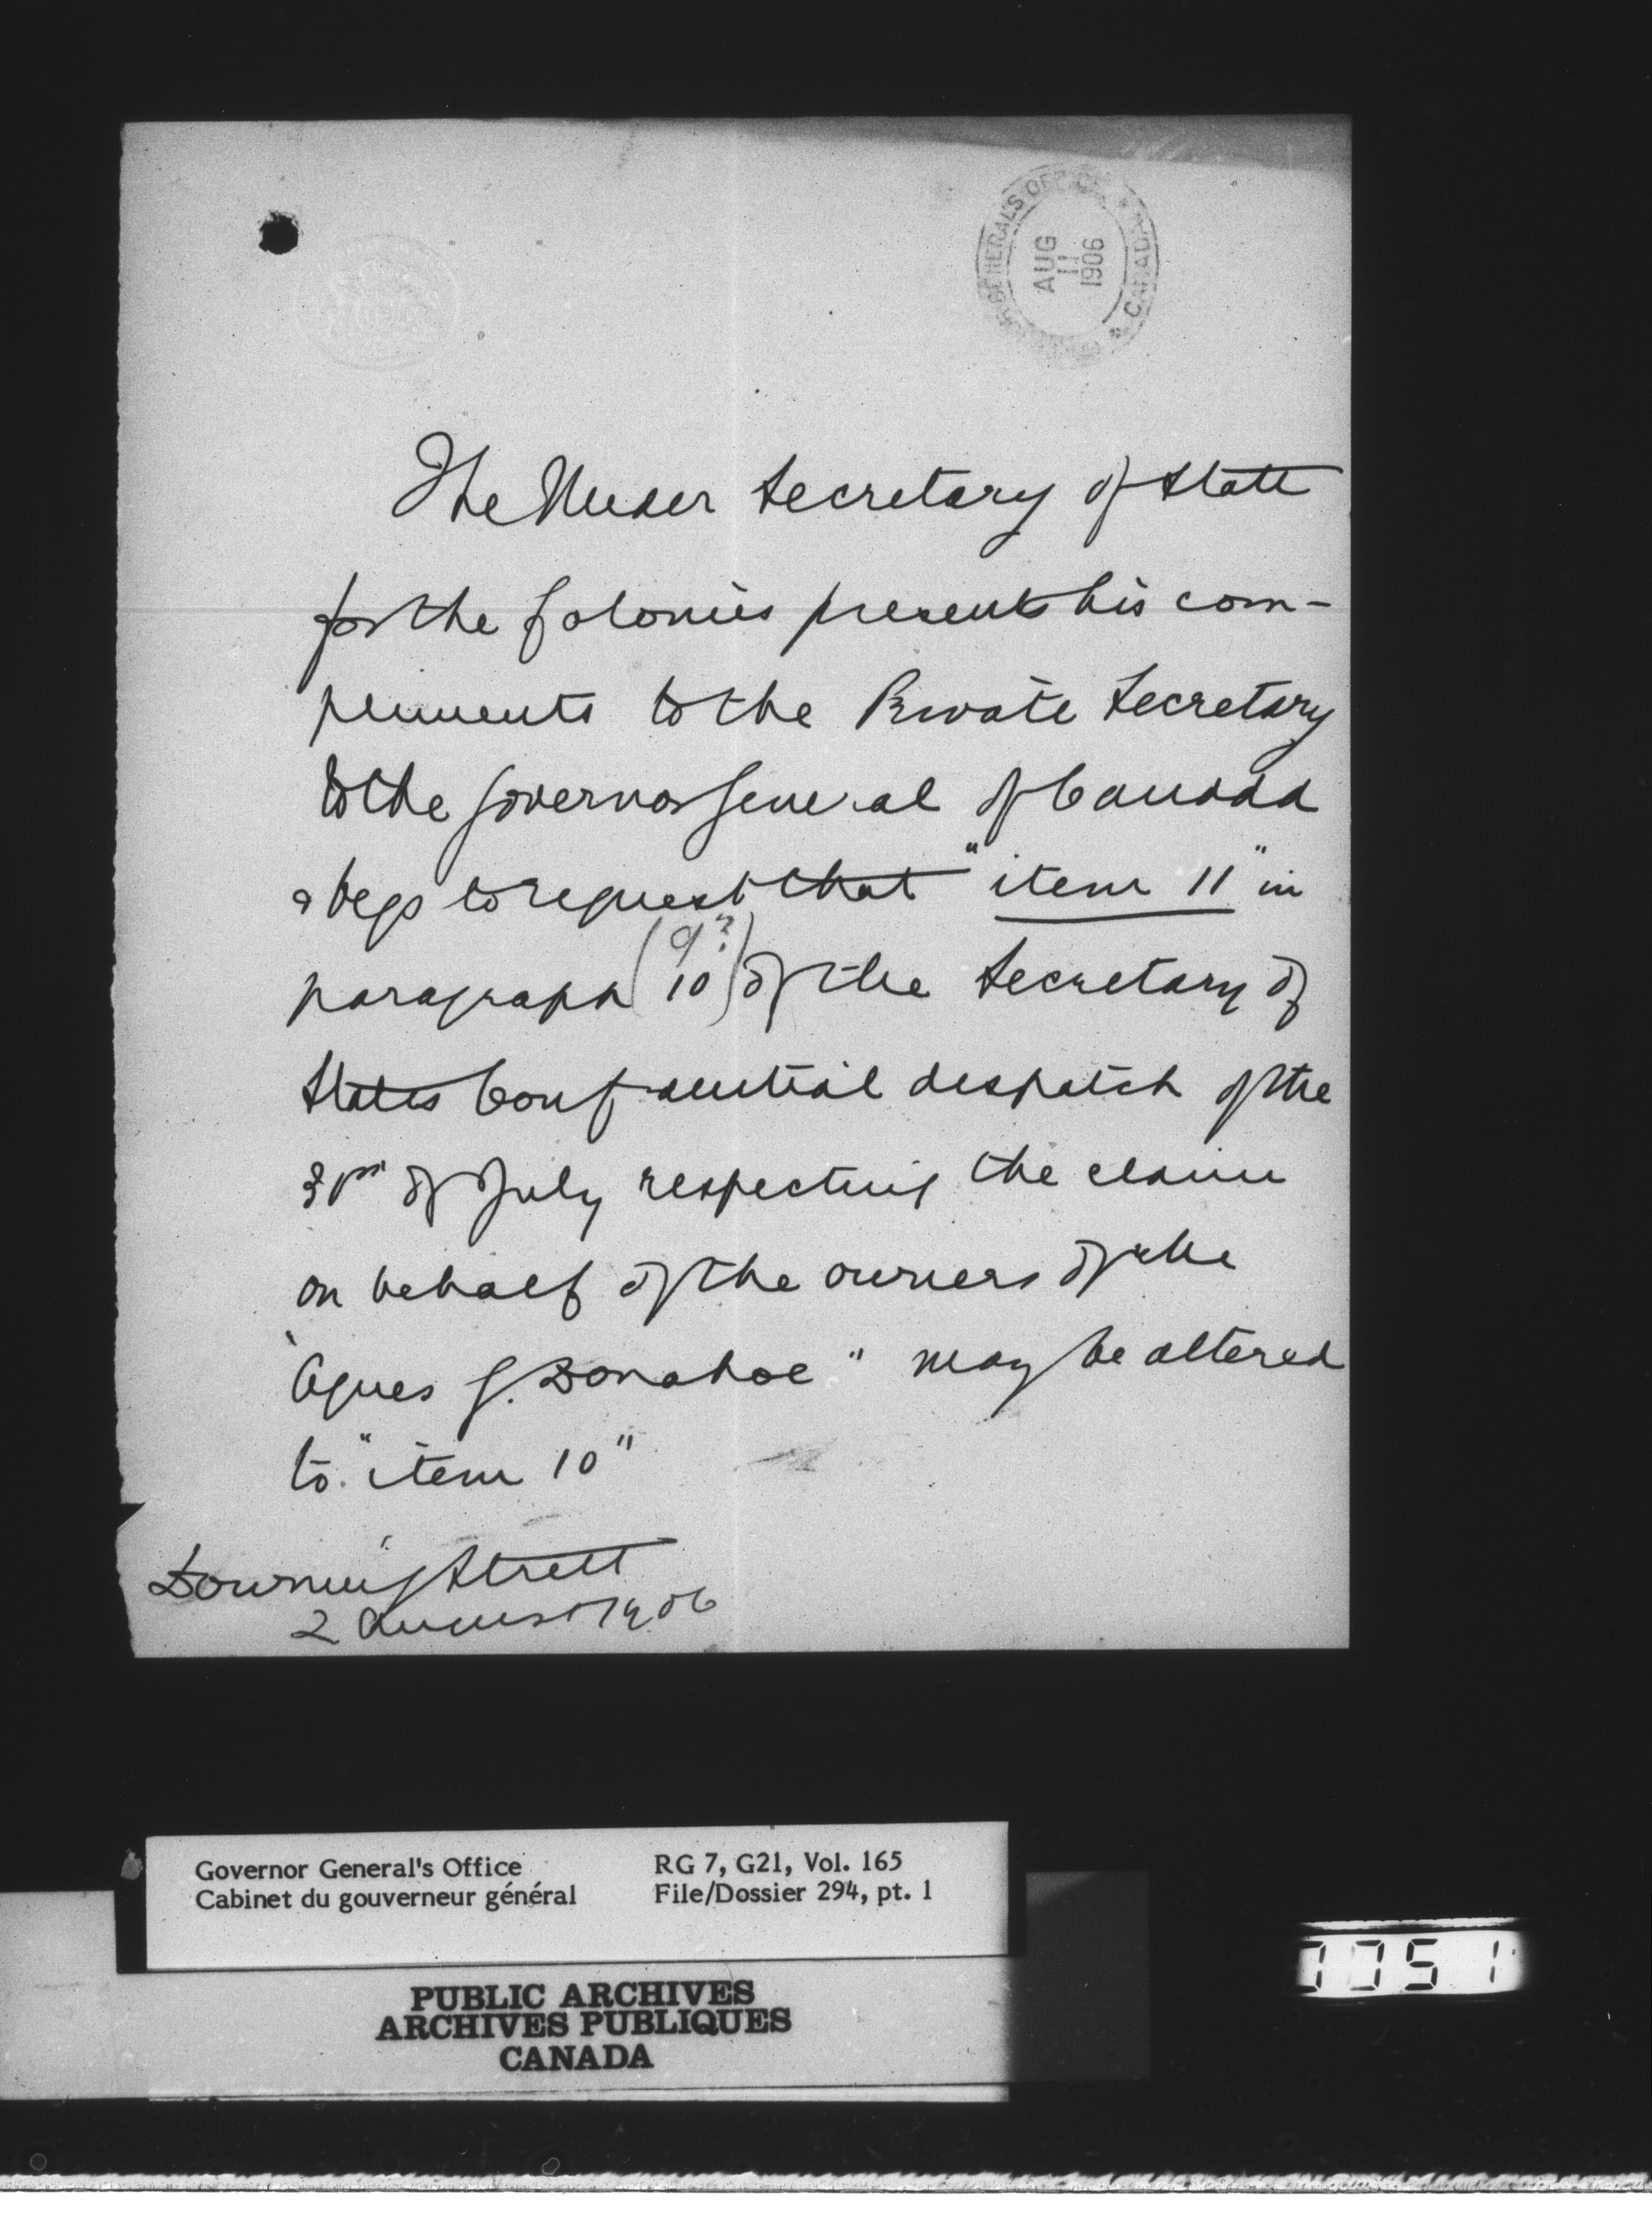 GENERAL'S OFFICE
AUG
11
1906
* CANADA *
The Under Secretary of State
for the Colonies presents his com-
pliments to the Private Secretary
to the Governor General of Canada
& begs to request that "item 11" in
(9?)
paragraph 10 of the Secretary of
State's Confidential despatch of the
31st of July respecting the claim
on behalf of the owners of the
"Agnes G. Donahoe" may be altered
to "item 10"
Downing Street
2 August 1906
Governor General's Office RG 7, G21, Vol. 165
Cabinet du gouverneur général File/Dossier 294, pt. 1
PUBLIC ARCHIVES
ARCHIVES PUBLIQUES
CANADA
0051